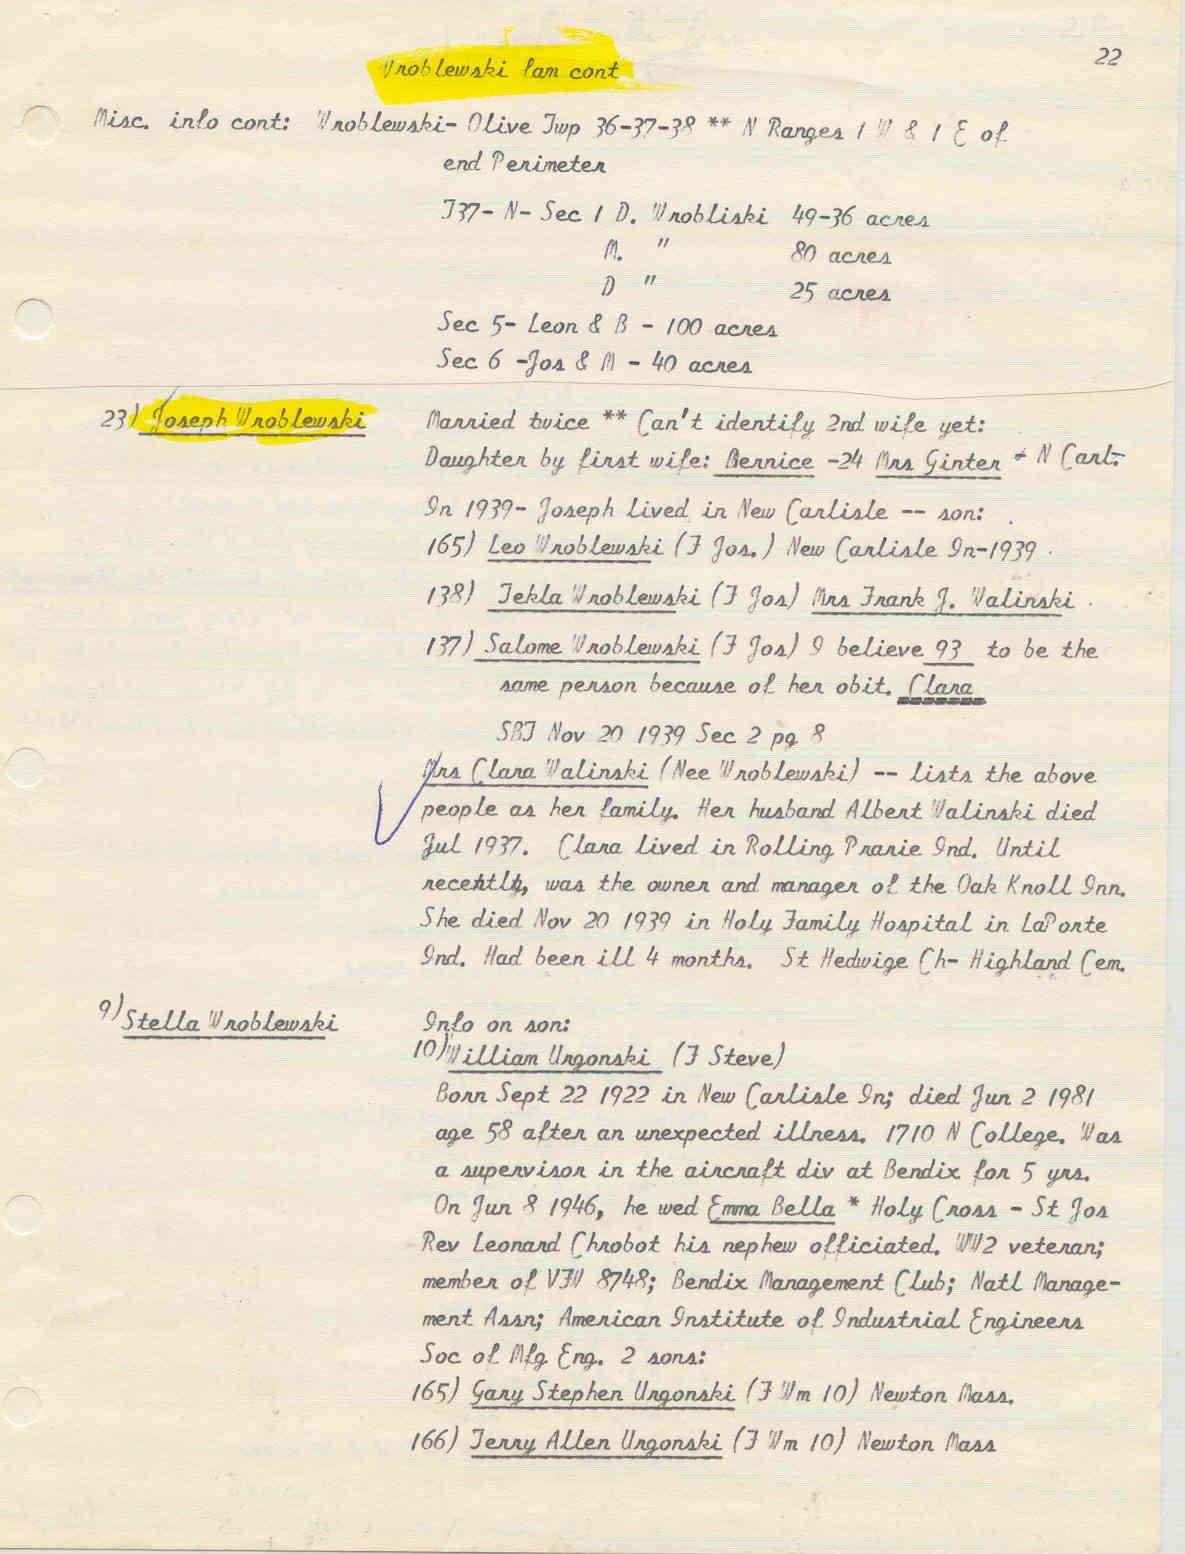 22
Wroblewski fam cont
Misc. info cont: Wroblewski- Olive Twp 36-37-38 ** N Ranges 1 W & 1 E of
end Perimeter
T37- N- Sec 1 D. Wrobliski 49-36 acres
M. " 80 acres
D " 25 acres
Sec 5- Leon & B - 100 acres
Sec 6 -Jos & M - 40 acres
23) Joseph Wroblewski Married twice ** Can't identify 2nd wife yet:
Daughter by first wife: Bernice -24 Mrs Ginter * N Carl.
In 1939- Joseph lived in New Carlisle -- son:
165) Leo Wroblewski (F Jos.) New Carlisle In-1939
138) Tekla Wroblewski (F Jos) Mrs Frank J. Walinski
137) Salome Wroblewski (F Jos) I believe 93 to be the
same person because of her obit. Clara
SBT Nov 20 1939 Sec 2 pg 8
Mrs Clara Walinski (Nee Wroblewski) -- lists the above
people as her family. Her husband Albert Walinski died
Jul 1937. Clara lived in Rolling Prarie Ind. Until
was the owner and manager of the Oak Knoll Inn.
She died Nov 20 1939 in Holy Family Hospital in LaPorte
Ind. Had been ill 4 months. St Hedwige Ch- Highland Cem.
9) Stella Wroblewski Info on son:
10) William Urgonski (F Steve)
Born Sept 22 1922 in New Carlisle In; died Jun 2 1981
age 58 after an unexpected illness. 1710 N College. Was
a supervisor in the aircraft div at Bendix for 5 yrs.
On Jun 8 1946, he wed Emma Bella * Holy Cross - St Jos
Rev Leonard Chrobot his nephew officiated. WW2 veteran;
member of VFW 8748; Bendix Management Club; Natl Manage-
ment Assn; American Institute of Industrial Engineers
Soc of Mfg Eng. 2 sons:
165) Gary Stephen Urgonski (F Wm 10) Newton Mass.
166) Terry Allen Urgonski (F Wm 10) Newton Mass